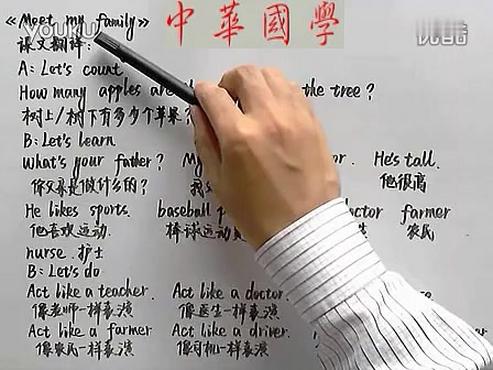 《Meet my family》
中華國學
YOUKU
优酷
课文翻译:
A: Let's count
How many apples are the tree?
树上/树下有多少个苹果?
B: Let's learn
What's your father? My or. He's tall.
你父亲是做什么的? 他很高
He likes sports. baseball doctor farmer
他喜欢运动 棒球运动员 农民
nurse.护士
B: Let's do
Act like a teacher. Act like a doctor.
像老师一样表演 像医生一样表演
Act like a farmer Act like a driver.
像农民一样表演 像司机一样表演